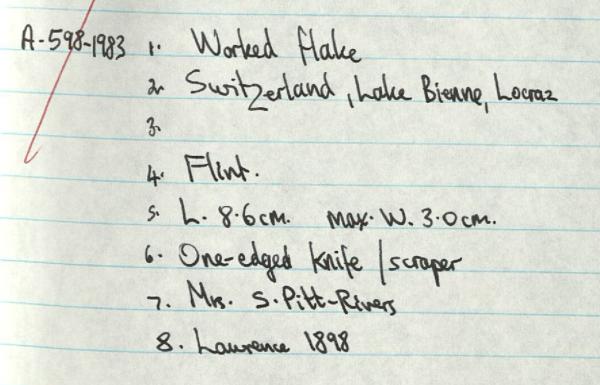 A.598-1983 1. Worked flake
2. Switzerland, Lake Bienne, Locraz
3.
4. Flint.
5. L. 8.6cm. max. W. 3.0cm.
6. One-edged knife / scraper
7. Mrs. S. Pitt-Rivers
8. Lawrence 1898